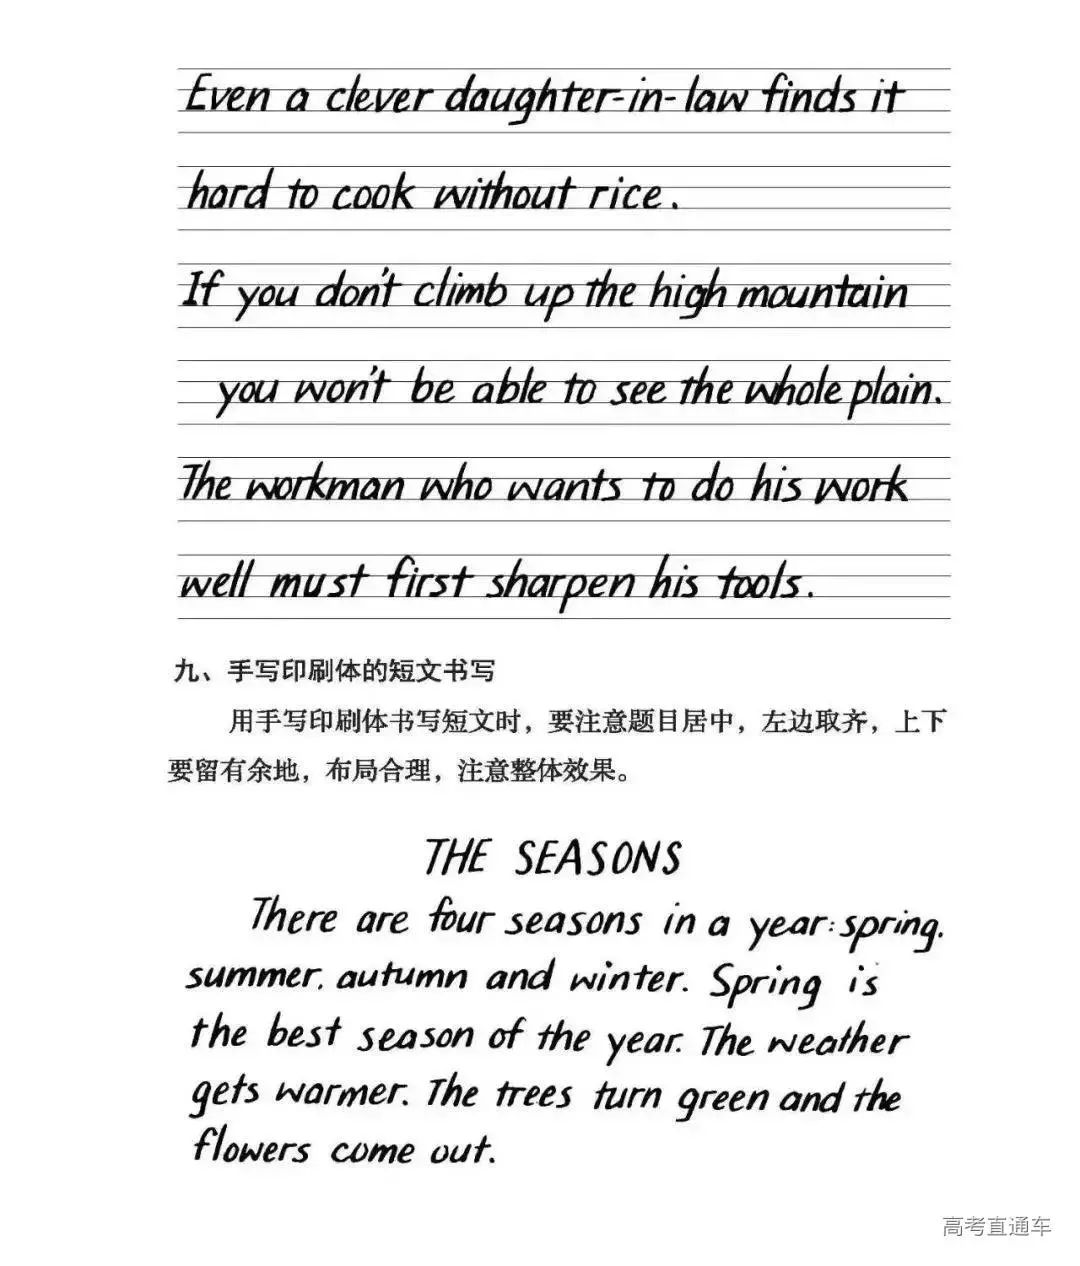 Even a clever daughter-in-law finds it
hard to cook without rice.
If you don't climb up the high mountain
you won't be able to see the whole plain.
The workman who wants to do his work
well must first sharpen his tools.
九、手写印刷体的短文书写
用手写印刷体书写短文时，要注意题目居中，左边取齐，上下
要留有余地，布局合理，注意整体效果。
THE SEASONS
There are four seasons in a year: spring.
summer. autumn and winter. Spring is
the best season of the year. The weather
gets warmer. The trees turn green and the
flowers come out.
高考直通车